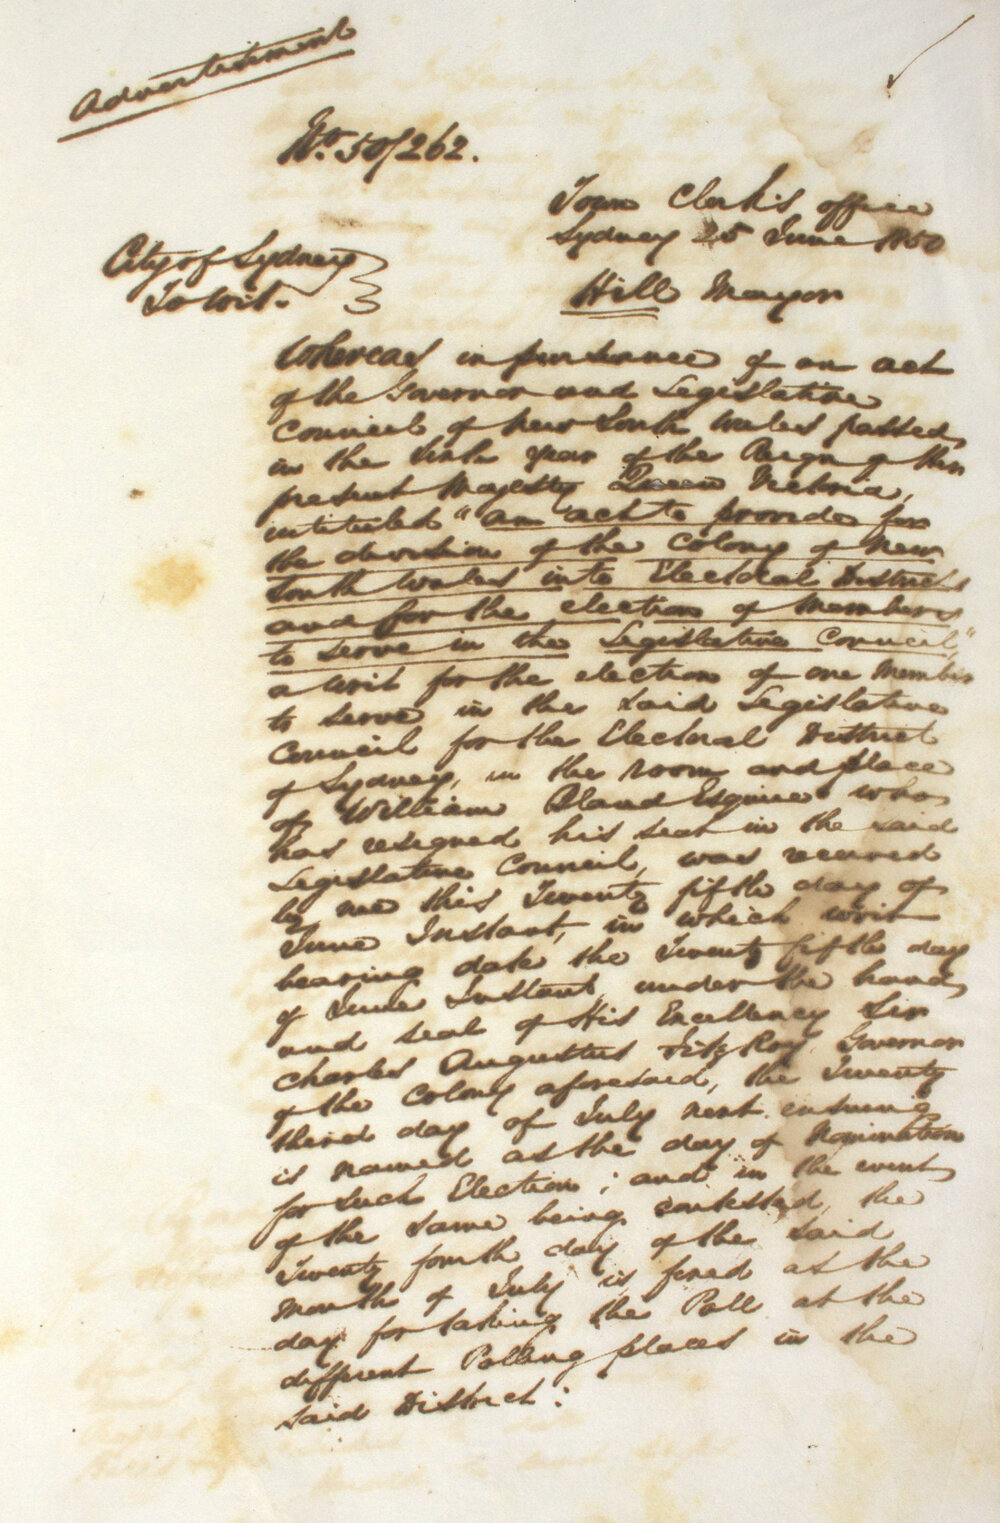 Advertisement
No. 50/262.
Town Clerk's office
Sydney 25 June 1850
City of Sydney
To Wit.
Hill Mayor
Whereas in pursuance of an act
of the Governor and Legislative
Council of New South Wales passed
in the Sixth year of the Reign of Her
present Majesty Queen Victoria,
intituled "an act to provide for
the division of the Colony of New
South Wales into Electoral Districts
and for the election of Members
to serve in the Legislative Council,"
a writ for the election of one Member
to serve in the said Legislative
Council for the Electoral District
of Sydney, in the room and place
of William Bland Esquire who
has resigned his seat in the said
Legislative Council, was received
by me this Twenty fifth day of
June Instant, in which writ
bearing date the Twenty fifth day
of June Instant, under the hand
and seal of His Excellency Sir
Charles Augustus FitzRoy Governor
of the Colony aforesaid, the Twenty
third day of July next ensuing
is named as the day of Nomination
for such Election; and in the event
of the same being contested, the
Twenty fourth day of the said
Month of July is fixed as the
day for taking the Poll at the
different Polling places in the
said District: